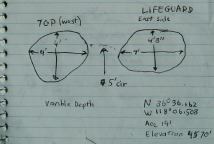 TOP (west)
LIFEGUARD
East Side
4'8"
9'
5' cir
Varible Depth
N 36°36.162
W 118°06.508
Acc 19'
Elevation 4570'